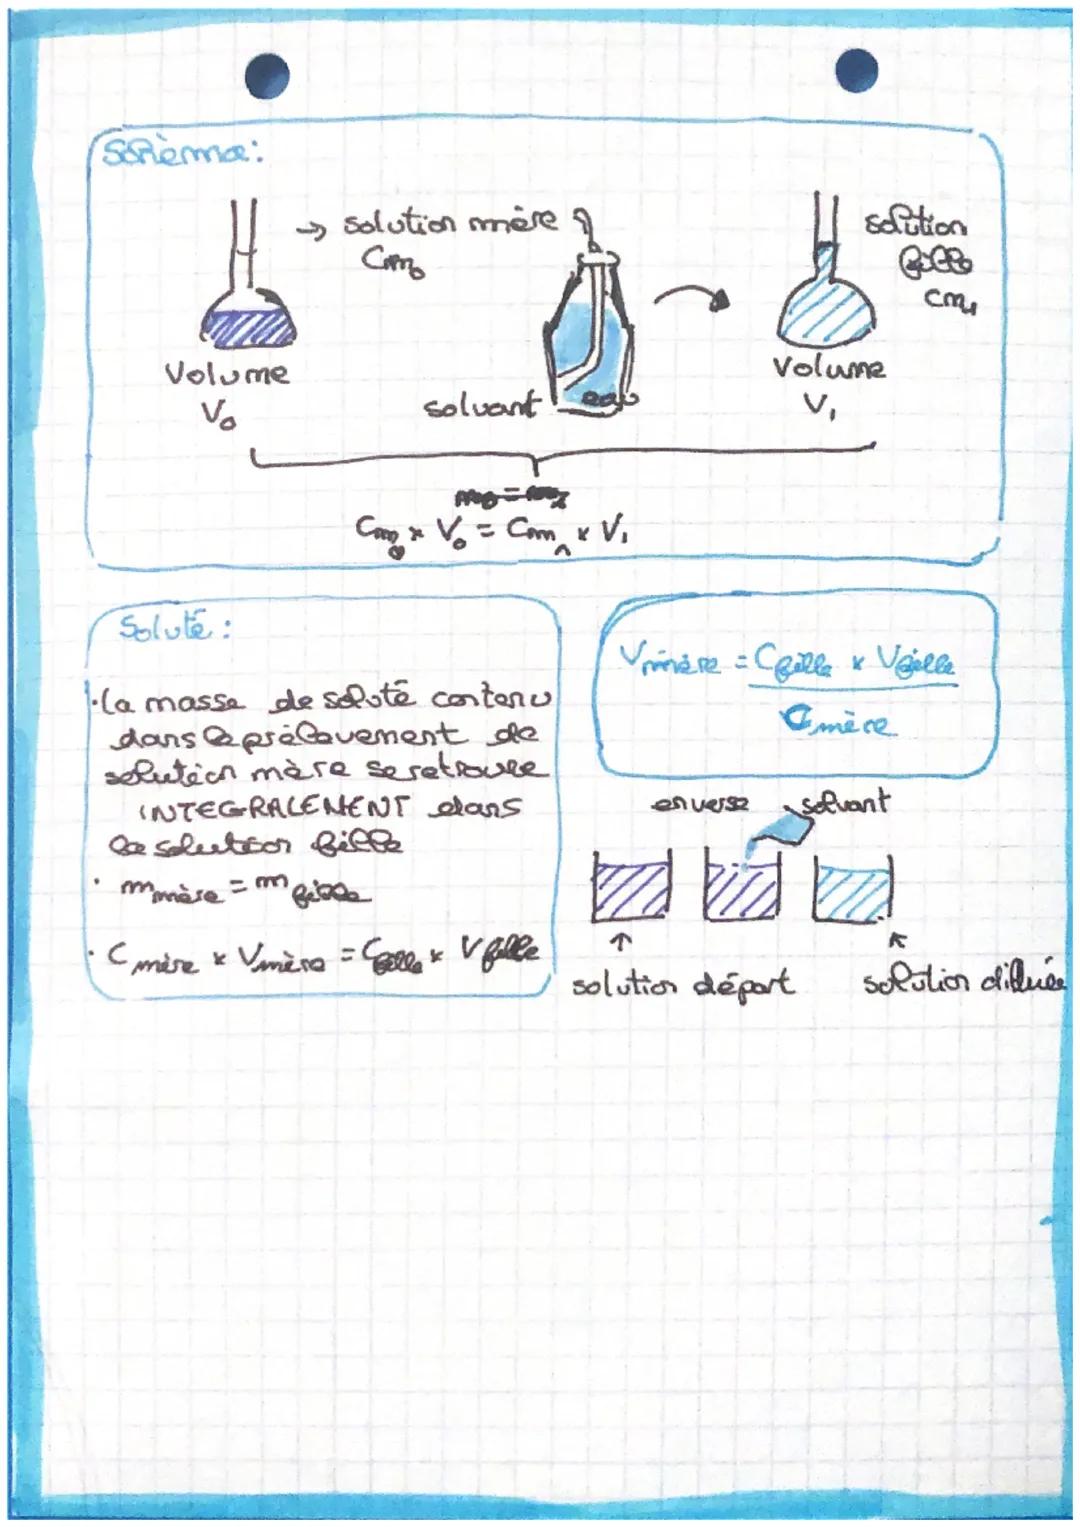 Schèma:
→ solution mère
Cm₀
solution
fille
cm₁
Volume
V₀
solvant
eau
Volume
V₁
m₀ = m₁
Cm₀ x V₀ = Cm₁ x V₁
Soluté :
• la masse de soluté contenu
dans le prélèvement de
solution mère se retrouve
INTEGRALEMENT dans
la solution fille
• m mère = m fille
• C mère x V mère = C fille x V fille
V mère = C fille x V fille
C mère
en verse
solvant
↑
solution départ
solution diluée